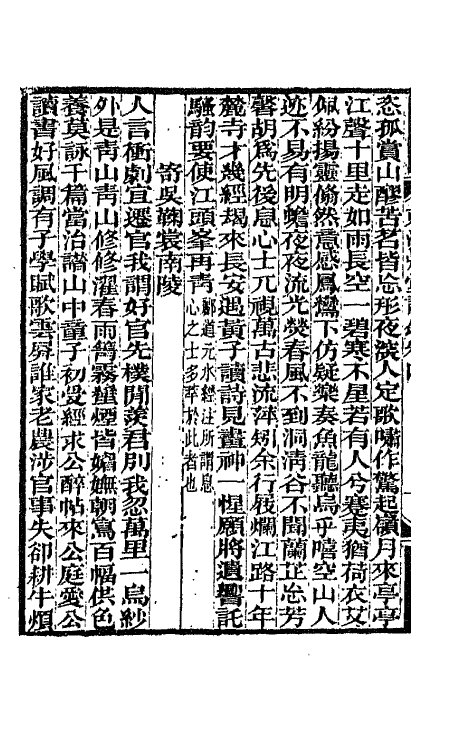 恣孤賞山醪苦茗皆忘形夜淡人定歌嘯作驚起嶺月來亭亭
江聲十里走如雨長空一碧寒不星若有人兮蹇夷猶荷衣艾
佩紛揚靈翛然意感鳳鸞下仿疑樂奏魚龍聽烏乎嘻空山人
迹不易有明蟾夜夜流光熒春風不到洞淸谷不聞蘭芷怡芳
馨胡爲先後息心士兀視萬古悲流萍矧余行屐爛江路十年
麓寺才幾經朅來長安遇黃子讀詩見畫神一惺願將遺響託
騷韵要使江頭峯再靑酈道元水經注所謂息
心之士多萃於此者也
寄吳鞠裳南陵
人言衝劇宜遷官我謂好官先樸閒羨君別我忽萬里一烏紗
外是靑山靑山修修濯春雨鬢霧鬟煙皆嫵朝寫百幅供色
養莫詠千篇當治譜山中童子初受經求公醉帖來公庭愛公
讀書好風調有子學賦歌雲屏誰家老農涉官事失卻耕牛煩